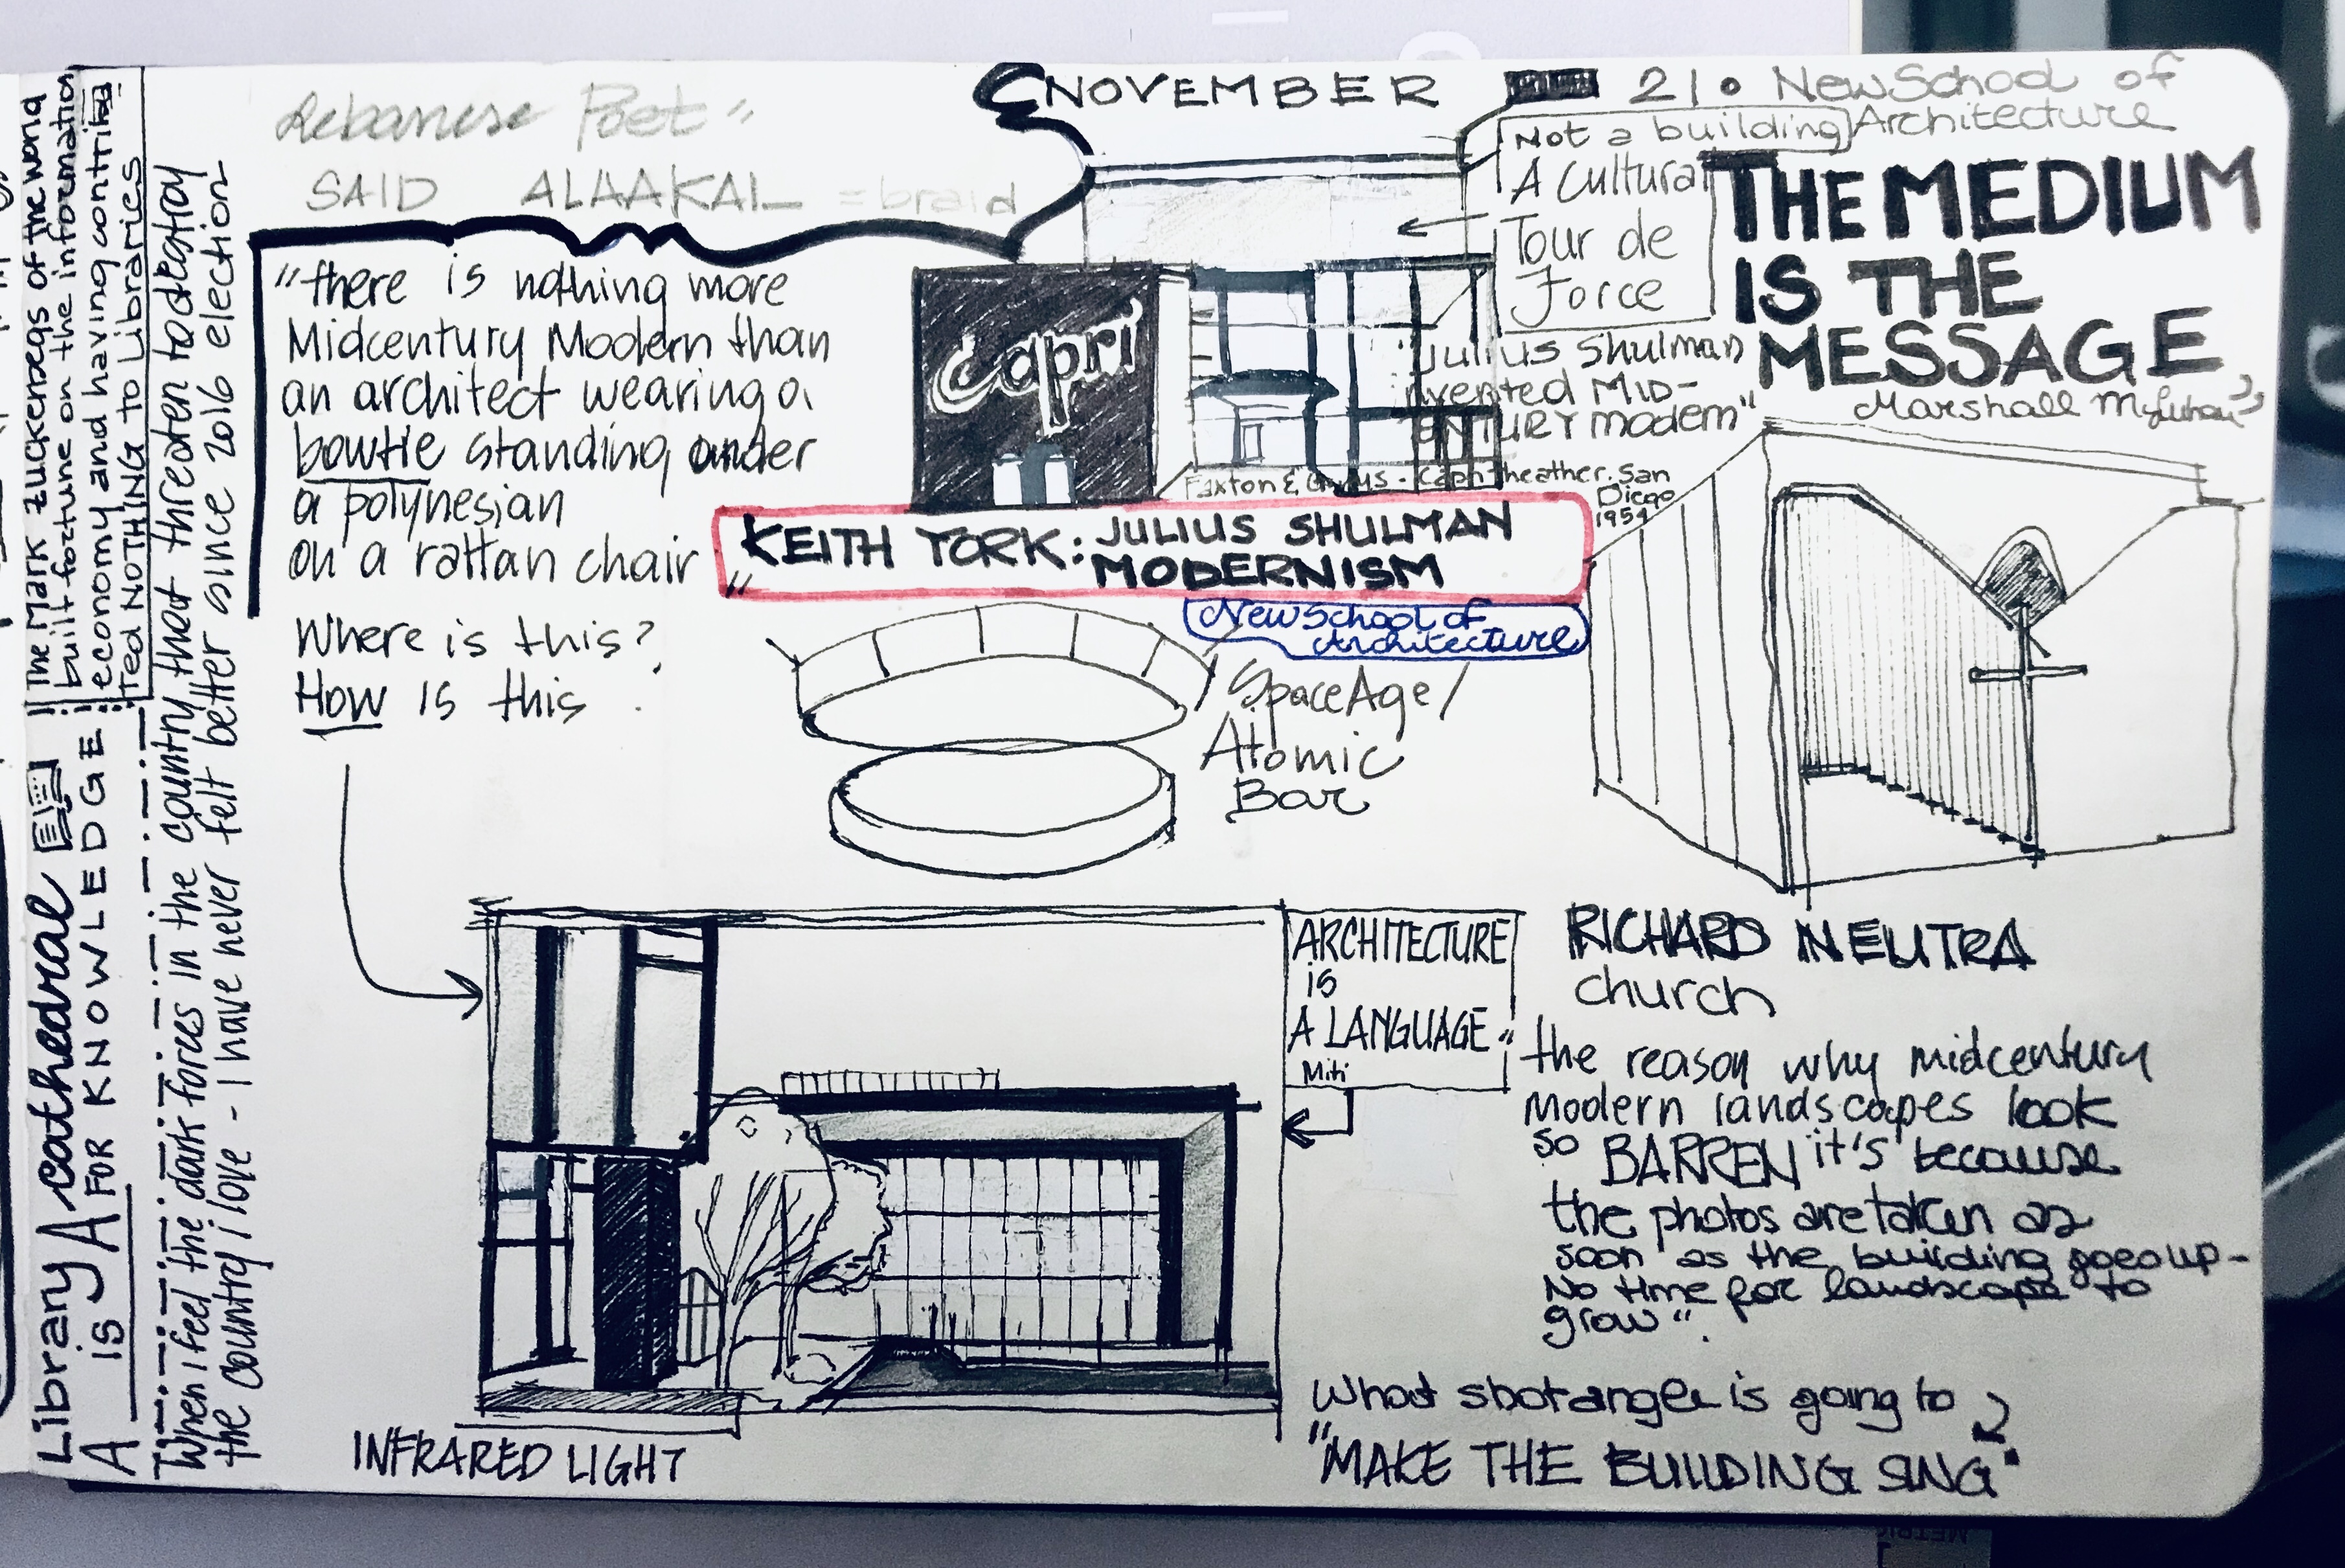 The Mark Zuckerbergs of the world
built fortune on the information
economy and having contribu
Ted NOTHING to Libraries
A Library is A cathedral
FOR KNOWLEDGE
When i feel the dark forces in the country that threaten to destroy
the country i love - I have never felt better since 2016 election
Lebanese Poet"
SAID ALAAKAL = braid
NOVEMBER 21 • NewSchool of
Architecture
Not a building
A Cultural
Tour de
Force
THE MEDIUM
IS THE
MESSAGE
Marshall
"there is nothing more
Midcentury Modern than
an architect wearing a
bowtie standing under
a polynesian
on a rattan chair
"
Where is this?
How is this ?
Capri
"Julius Shulman
nvented MID-
ENTURY modern"
Theather. San
Diego
1954
KEITH YORK: JULIUS SHULMAN
MODERNISM
NewSchool of
Architecture
Space Age/
Atomic
Bar
ARCHITECTURE
is
A LANGUAGE
Miti
RICHARD NEUTRA
church
"the reason why midcentury
modern landscapes look
so BARREN it's because
the photos are taken as
soon as the building goes up -
No time for landscape to
grow".
What shot angle is going to
"MAKE THE BUILDING SING"
INFRARED LIGHT